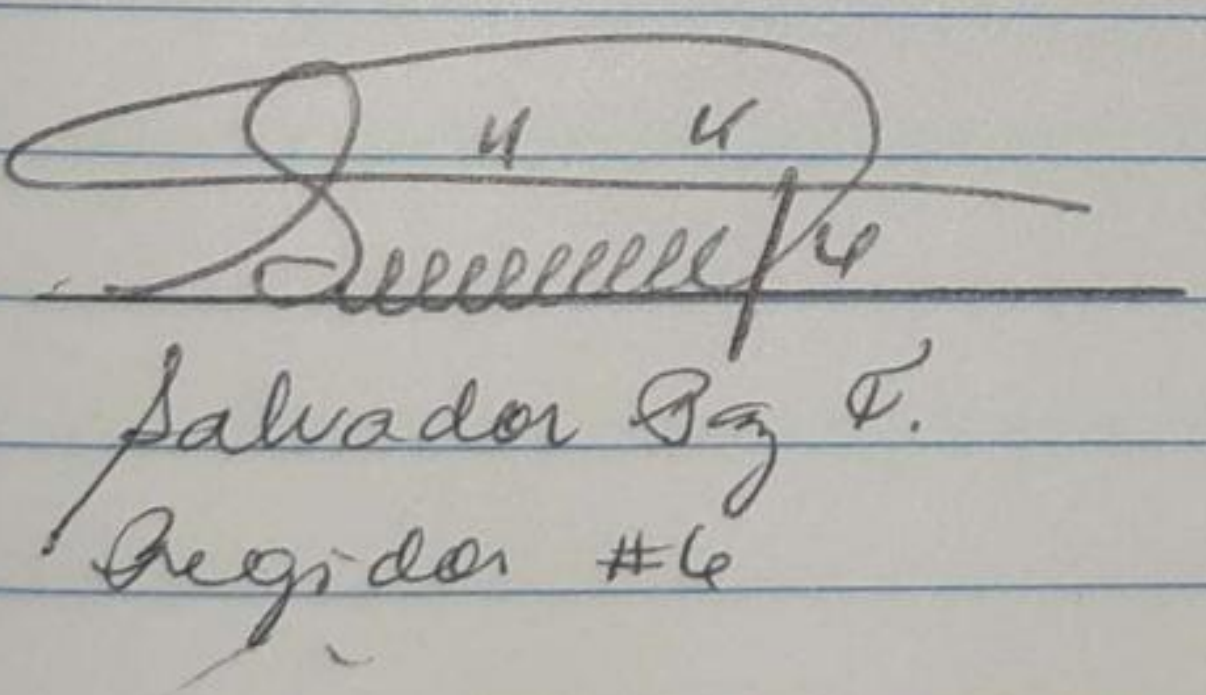 Salvador Paz F.
Regidor #6